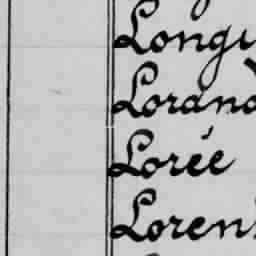 Longu
Lorand
Lorée
Loren